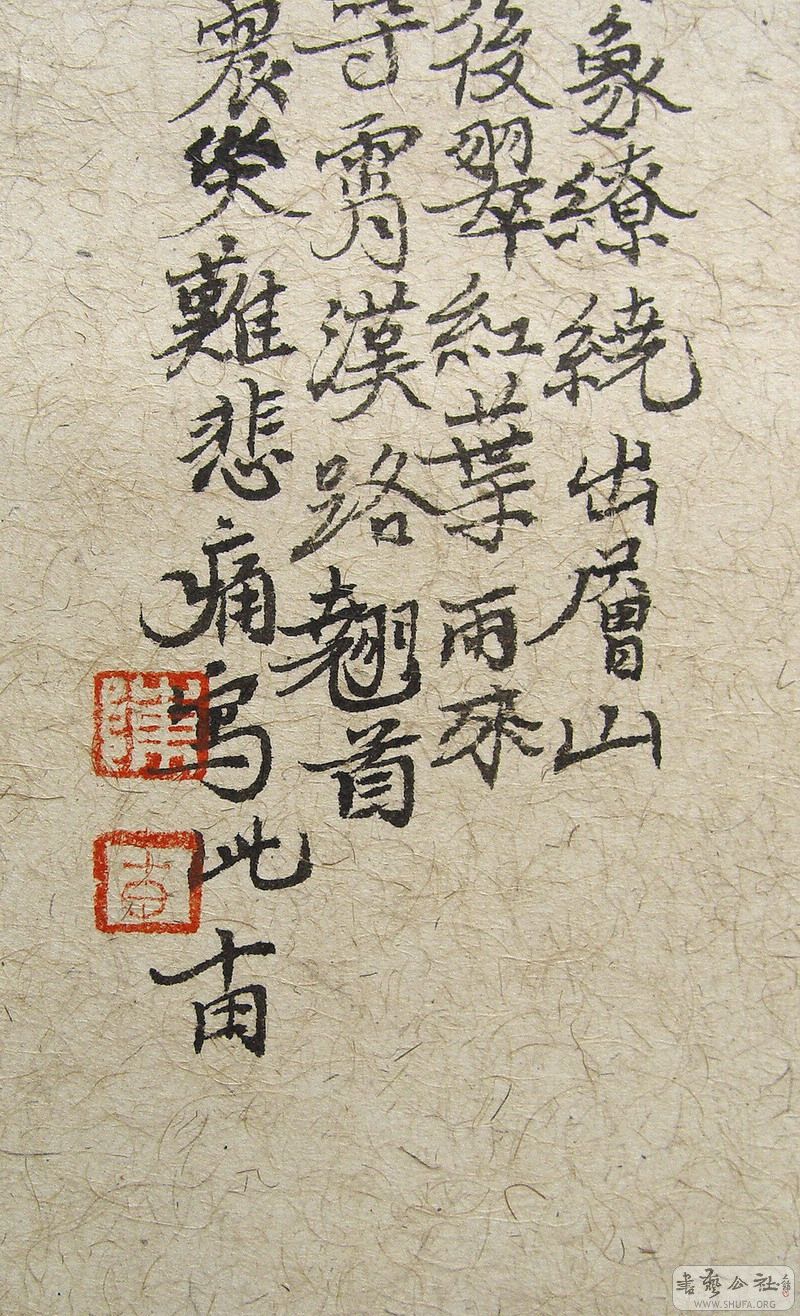 象繚繞出層山
後翠紅葉雨來
等霄漢路翹首
震災難悲痛寫此
書藝公社
WWW.SHUFA.ORG